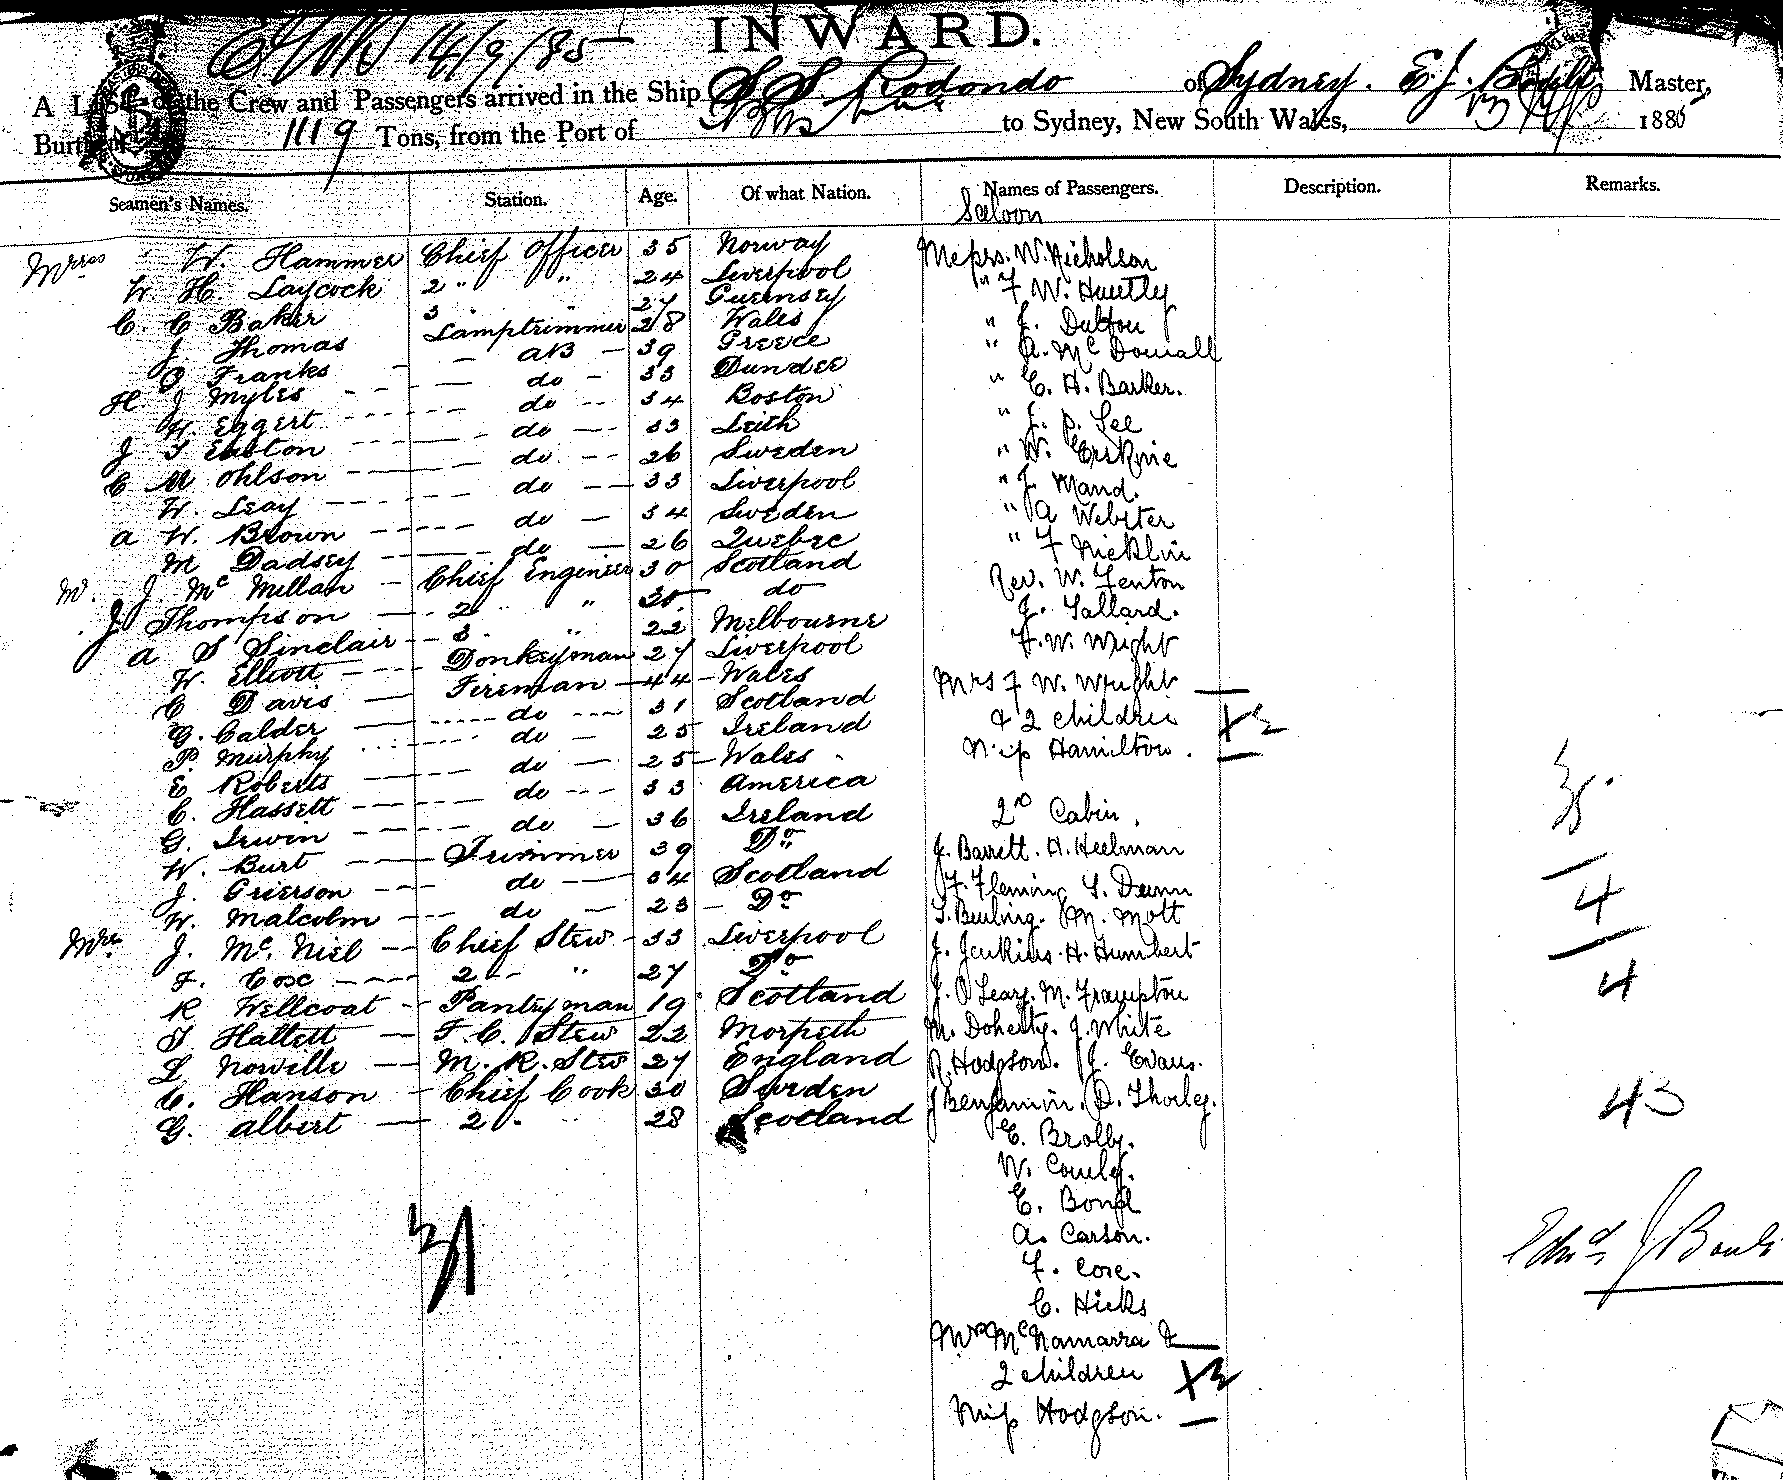 INWARD.
14/9/85
A List of the Crew and Passengers arrived in the Ship S S Rodondo of Sydney. E. J. Master,
1119 Tons, from the Port of to Sydney, New South Wales, 1885
Seamen's Names. Station. Age. Of what Nation. Names of Passengers. Description. Remarks.
Saloon
W. Hammer Chief Officer 35 Norway Messrs. W. Nicholson
W. H. Laycock 2 " " 24 Liverpool " F W. Huntly
C. C Baker 3 " 27 Guernsey " J. Dalton
J Thomas Lamptrimmer 28 Wales " A. Mc Dowall
J Franks AB 39 Greece " C. H. Barker.
H. J Myles do 33 Dundee " J. P. Lee
W. Eggert do 34 Boston " W. Erskine
J T Easton do 33 Leith " J. Mand.
C M Ohlson do 26 Sweden " A Webster
W. Leay do 33 Liverpool " F Nicklin
A W. Brown do 34 Sweden Rev. W. Fenton
M Dadsey do 26 Quebec J. Tallard.
J Mc Millan Chief Engineer 30 Scotland F. W. Wright
J Thompson 2 " " 35 do Mrs F W. Wright
A S Sinclair 3 " 22 Melbourne & 2 children X 2
W. Elliott Donkeyman 27 Liverpool Miss Hamilton.
C Davis Fireman 44 Wales
G. Calder do 31 Scotland
P. Murphy do 25 Ireland
E Roberts do 25 Wales
C. Hassett do 33 America
G. Irwin do 36 Ireland 2nd Cabin.
W. Burt Trimmer 39 Do J. Barrett. H. Heelman
J. Grierson do 34 Scotland F. Fleming S. Dunn
W. Malcolm do 23 Do S. Beuling. M. Mott
J. Mc. Niel Chief Stew 33 Liverpool J. Jenkins. H. Humbert
F. Cox 2 " 27 Do J. O'Leary. M. Frampton
R Wellcoat Pantryman 19 Scotland M. Doherty. J. White
T Hallett F. C. Stew 22 Morpeth R. Hodgson. J. Evans.
L Noville M. R. Stew 27 England J Benjamin. D. Thorley.
C. Hanson Chief Cook 30 Sweden E. Brolly.
G. Albert 2 " 28 Scotland W. Comley.
E. Bond
A. Carson.
F. Core.
C. Hicks
Mrs McNamarra &
2 children X 2
Miss Hodgson.
31
35.
4
4
43
Edwd J Boult